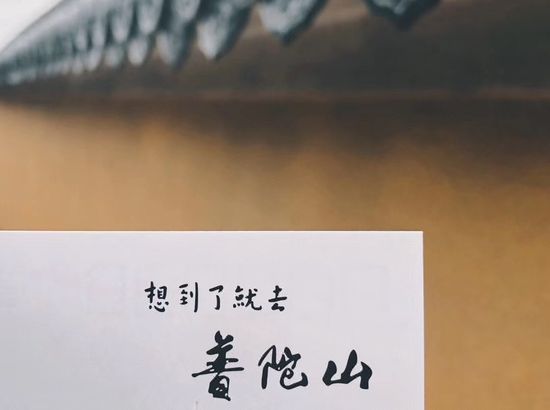 想到了就去
普陀山